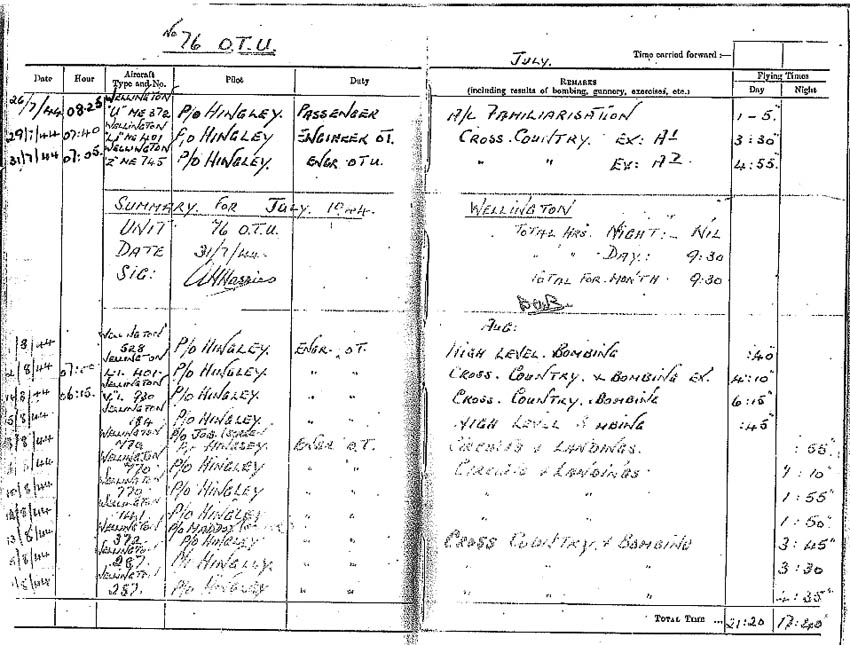 No 76 O.T.U.
JULY. Time carried forward :—
Date Hour Aircraft Type and No. Pilot Duty REMARKS (including results of bombing, gunnery, exercises, etc.) Flying Times Day Night
26/7/44 08.25 WELLINGTON "U" NE 372 P/O HINGLEY. PASSENGER A/L FAMILIARISATION 1-5"
29/7/44 07:40 WELLINGTON "L" NE 401 P/O HINGLEY ENGINEER OT. CROSS.COUNTRY. EX: A1 3:30"
31/7/44 07:05. WELLINGTON "Z" NE 745 P/O HINGLEY. ENGR OTU. " " EX: A2. 4:55.
SUMMARY. FOR JULY. 1944. WELLINGTON
UNIT 76 O.T.U. TOTAL HRS. NIGHT:- NIL
DATE 31/7/44. " " DAY: 9:30
SIG: TOTAL FOR MONTH. 9:30
AUG:
/8/44 WELLINGTON 528 P/O HINGLEY. ENGR. OT. HIGH LEVEL. BOMBING :40"
/8/44 07: WELLINGTON 401. P/O HINGLEY. " " CROSS. COUNTRY. & BOMBING EX. 4:10"
/8/44 06:15. WELLINGTON P/O HINGLEY. " " CROSS. COUNTRY. & BOMBING 6:15"
/8/44 WELLINGTON 184 P/O HINGLEY " " HIGH LEVEL BOMBING :45"
/8/44 WELLINGTON 770 P/O HINGLEY ENGR O.T. CIRCUITS & LANDINGS. :55"
/8/44 WELLINGTON 770 P/O HINGLEY " " CIRCUITS & LANDINGS. :10"
/8/44 WELLINGTON 770 P/O HINGLEY " " " " 1:55"
/8/44 WELLINGTON P/O HINGLEY " " " " 1:50"
/8/44 WELLINGTON 372 P/O MADDOX P/O HINGLEY " " CROSS COUNTRY. & BOMBING 3:45"
/8/44 WELLINGTON 287. P/O HINGLEY. " " " " 3:30
/8/44 WELLINGTON 287. P/O HINGLEY " " " " :35"
TOTAL TIME ... 21:20 17:40"